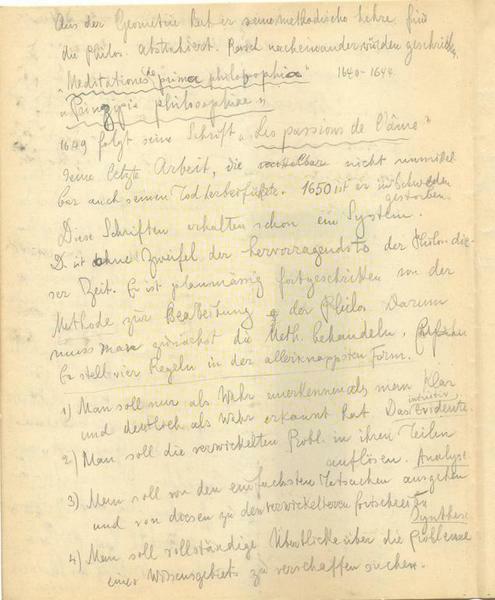 Aus der Geometrie hat er seine methodische Lehre für
die Philos. abstrahiert. Rasch nacheinander würden geschrieb.
„Meditationes de prima philosophia" 1640-1644
„Prinzipia philosophiae"
1649 folgt seine Schrift „Les passions de l'âme"
Seine letzte Arbeit, die nicht unmittel
bar auch seinen Tod herbeiführte. 1650 ist er in Schweden
gestorben.
Diese Schriften erhalten schon ein System.
D. ist ohne Zweifel der hervorragendste der Philos. die-
ser Zeit. Er ist planmässig fortgeschritten von der
Methode zur Bearbeitung der Philos. Darum
muss man zunächst die Meth. behandeln.
Er stellt vier Regeln in der allerknappsten Form.
1) Man soll nur als Wahr anerkennen als man Klar
und deutlich als Wahr erkannt hat Das Evidente
intuitiv
2) Man soll die verwickelten Probl. in ihren Teilen
auflösen. Analyse
3) Man soll von den einfachsten Tatsachen ausgehen
und von diesen zu den verwickelteren fortschreiten
Synthese
4) Man soll vollständige Überblicke über die Probleme
eines Wissensgebiets zu verschaffen suchen.